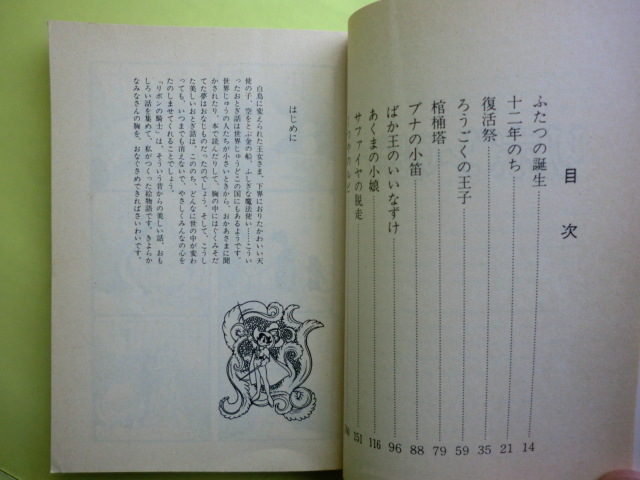 目次
ふたつの誕生 14
十二年のち 21
復活祭 35
ろうごくの王子 59
棺桶塔 79
ブナの小笛 88
ばか王のいいなずけ 96
あくまの小娘 116
サファイヤの脱走 151
はじめに
白鳥に変えられた王女さま、下界におりたかわいい天
使の子、空をとぶ金の船、ふしぎな魔法使い……こうい
ったおとぎ話は世界じゅうどこの国にもあるようです。
世界じゅうの人たちが小さいときから、おかあさまに聞
かされたり、本で読んだりして、胸の中にはぐくみそだ
てた夢はおなじものだったのでしょう。そして、こうし
た美しいおとぎ話は、こののち、どんなに世の中が変わ
っても、いつまでも消えないで、やさしくみんなの心を
たのしませてくれることでしょう。
「リボンの騎士」は、そういう昔からの美しい話、おも
しろい話を集めて、私がつくった絵物語です。きよらか
なみなさんの胸を、おなぐさめできればさいわいです。